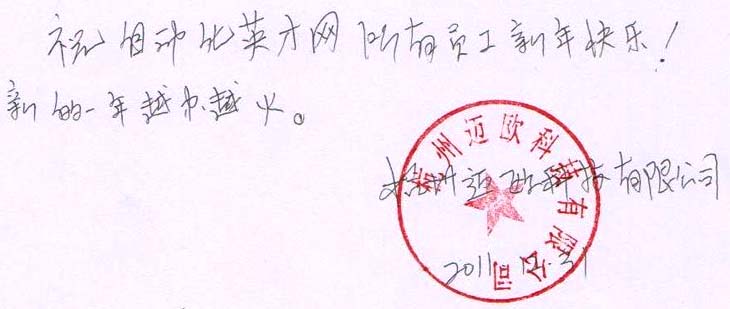 祝自动化英才网所有员工新年快乐!
新的一年越办越火。
杭州迈欧科技有限公司
杭州迈欧科技有限公司
2011.12.31